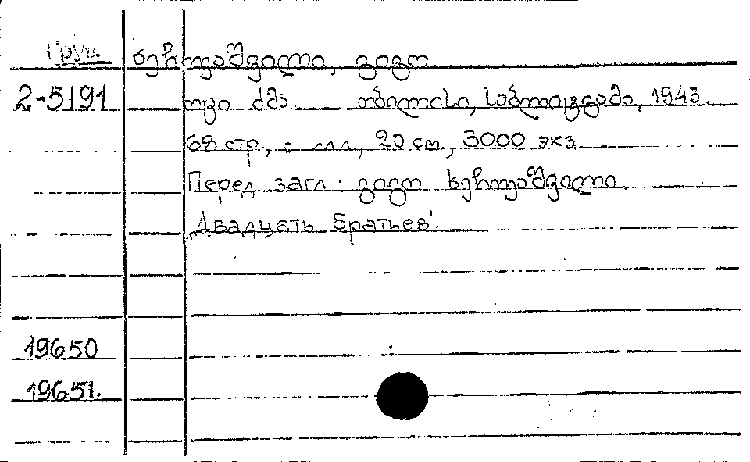 Груз. ხერხეულიძე, გიგო
2-5191 ოცი ძმა. თბილისი, საბლიტგამი, 1943.
68 стр., с илл., 20 см, 3000 экз.
Перед загл.: გიგო
Двадцать братьев.
19650
19651.